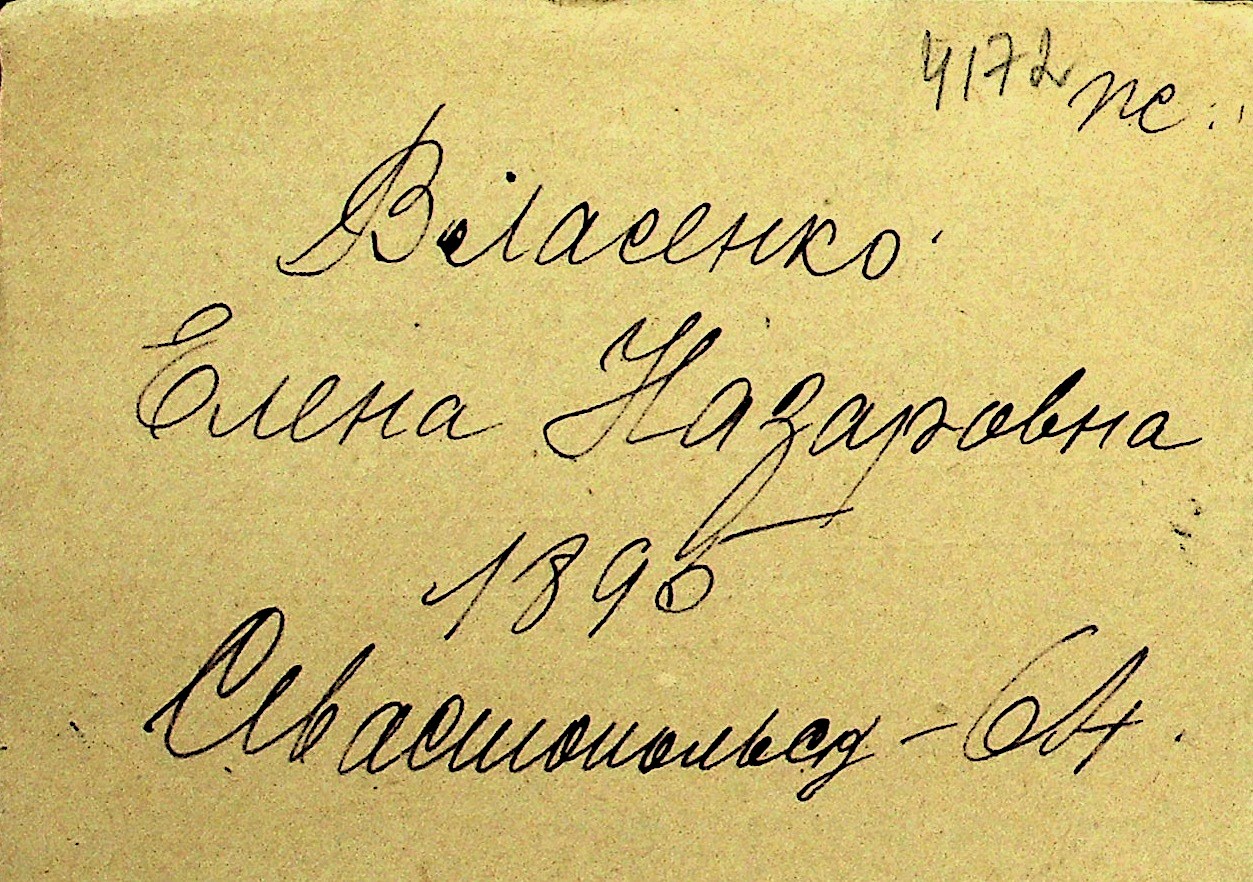 4172 пс.
Власенко
Елена Назаровна
1895
Севастопольск - 64.